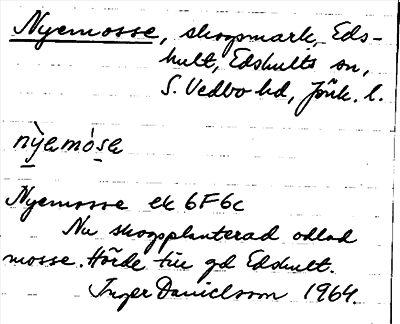 Nyemosse, skogsmark, Eds-
hult, Edshults sn,
S. Vedbo hd, Jönk. l.
nỳemós̲e
Nyemosse ek 6F6c
Nu skogsplanterad odlad
mosse. Hörde till gd Edshult.
Inger Danielsson 1964.